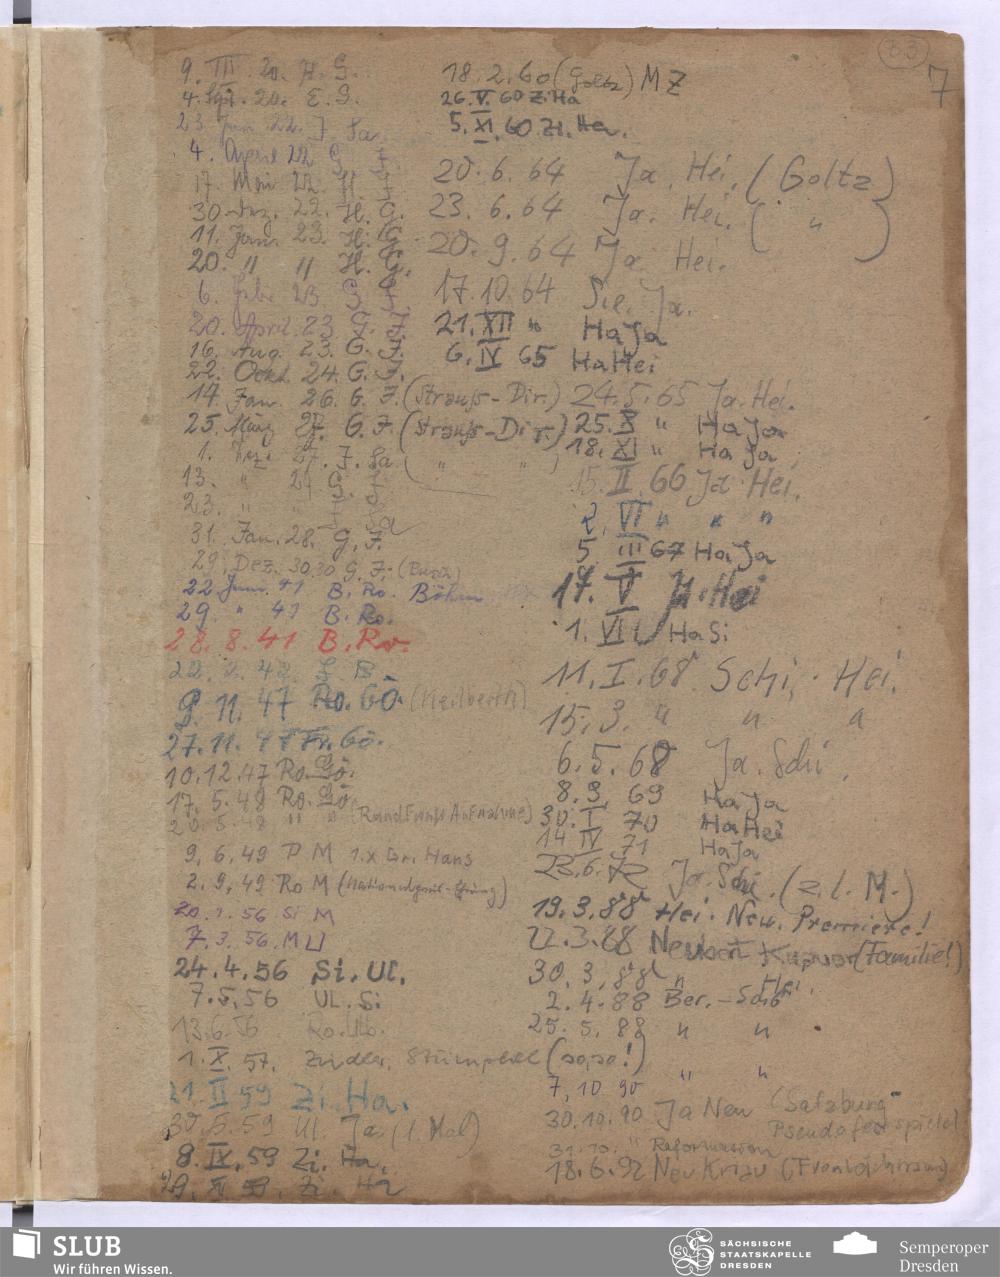 B3
7
9. III. 20. H. G.
4. Spt. 20. E. G.
23. Jan. 22. J. Sa.
4. April 22 G. F.
17. Mai 22. H. F.
30 Dez. 22. H. G.
11. Jan. 23. H. G.
20. " " H. G.
6. Febr. 23 G. F.
20. April. 23 G. F.
16. Aug. 23. G. F.
22. Okt. 24. G. F.
14. Jan. 26. G. F. (Strauß-Dir.)
25. März 27. G. F. (Strauss-Dir.)
1. Dez. 27. F. Sa. ( " " )
13. " 27 G. F.
23. " " F. Sa
31. Jan. 28. G. F.
29. Dez. 30. G. F. (Busch)
22 Juni. 41 B. Ro. Böhm
29. " 41 B. Ro.
28. 8. 41 B. Ro.
22. 2. 42. B
9. 11. 47 Ro. Gö. (Keilberth)
27. 11. 47 Fr. Gö.
10. 12. 47 Ro. Gö.
17. 5. 48 Ro. Gö.
20. 5. 48 " " (Rundfunk Aufnahme)
9. 6. 49 P M 1.x Gr. Haus
2. 9. 49 Ro M (Nationalpreis-)
20. 1. 56 Si M
7. 3. 56. M U
24. 4. 56 Si. Ul.
7. 5. 56 Ul. Si
13. 6. 56 Ro. Ul.
1. X. 57. Zindler, Stümpfell (soso!)
21. II 59 Zi. Ha.
30. 5. 59 Ul. Ja. (1. Mal)
8. IX. 59 Zi. Ha.
29. XI 59. Zi. Ha
18. 2. 60 (Goltz) M Z
26. V. 60 Zi Ha
5. XI. 60 Zi. Ha.
20. 6. 64 Ja. Hei. (Goltz)
23. 6. 64 Ja. Hei. ( " )
20. 9. 64 Ja Hei.
17. 10. 64 Sie. Ja.
21. XII " Ha Ja
6. IV 65 Ha Hei
24. 5. 65 Ja. Hei.
25. X " Ha Ja
18. XI " Ha Ja
15. II. 66 Ja Hei.
2. VI " " "
5 III 67 Ha Ja
17. V J. Hei
1. VII Ha Si
11. I. 68 Schi. Hei.
15. 3. " " "
6. 5. 68 Ja. Schi.
8. 9. 69 Ha Ja
30. I 70 Ha Hei
14 IV 71 Ha Ja
23. 6. 72 Ja. Schi. (z. l. M.)
19. 3. 88 Hei. Neu. Premiere!
22. 3. 88 Neubert (Familie!)
30. 3. 88 " Hei.
2. 4. 88 Ber. - Schö
25. 5. 88 " "
7. 10 90 " "
30. 10. 90 Ja Neu (Salzburg-
Pseudofestspiele)
31. 10. " Reformation
18. 6. 92 Neu Knau